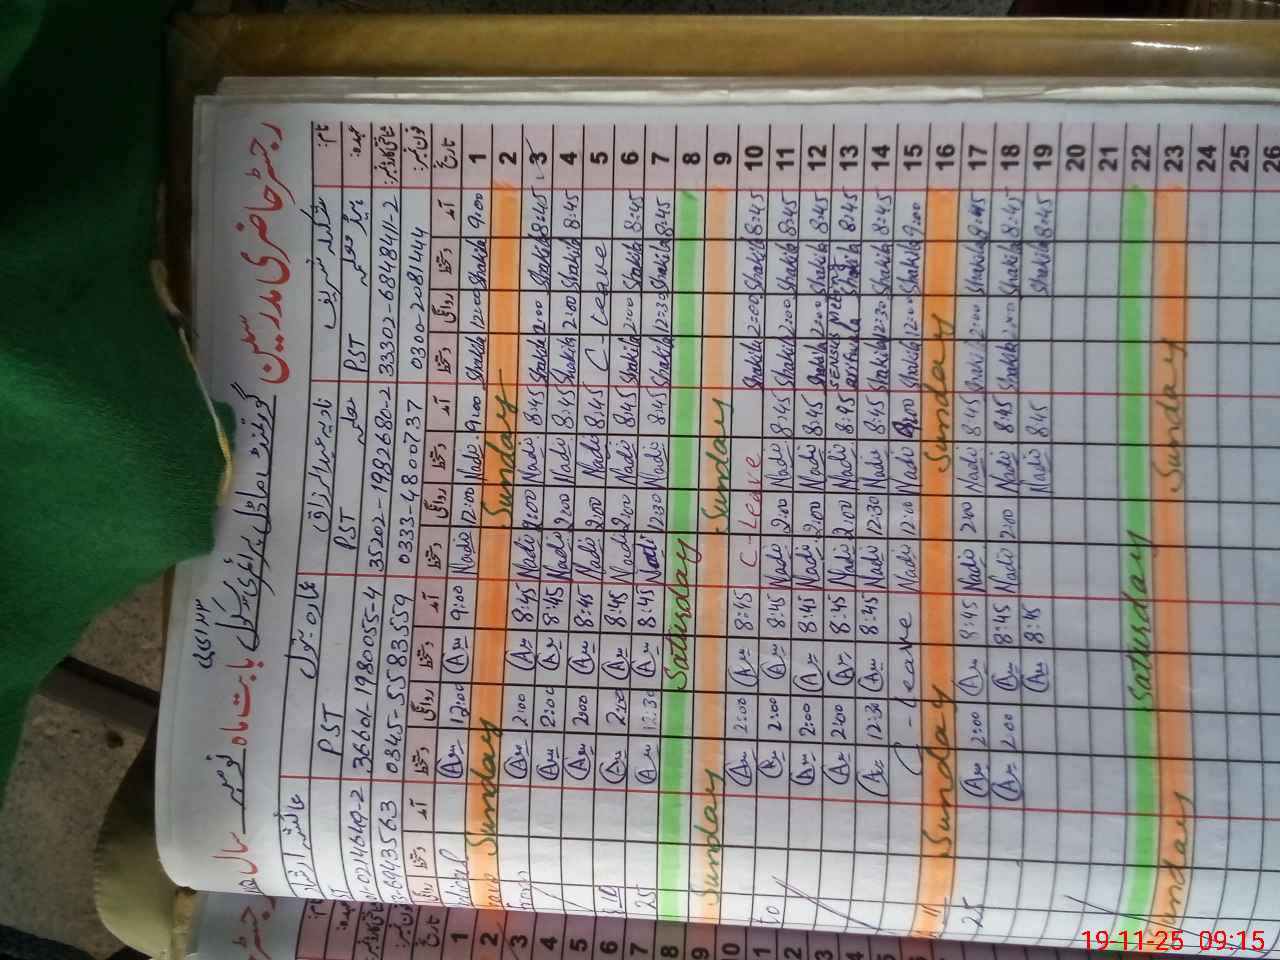 رجسٹر حاضری مدرسین گورنمنٹ ماڈل پرائمری سکول بابت ماہ نومبر سال
نام: شکیلہ شریف نادیہ عبدالرزاق عمارہ بتول
عہدہ: PST معلمہ PST PST
شناختی کارڈ نمبر: 33302-6848411-2 35202-1982680-2 36601-1980055-4
فون نمبر: 0300-2081444 0333-4800737 0345-5583559
تاریخ آمد دستخط روانگی دستخط آمد دستخط روانگی دستخط آمد دستخط روانگی دستخط آمد دستخط
1 9:00 Shakila 12:00 Shakila 9:00 Nadi 12:00 Nadi 9:00 Am 12:00 Am
2 Sunday Sunday
3 8:45 Shakila 2:00 Shakila 8:45 Nadi 2:00 Nadi 8:45 Am 2:00 Am
4 8:45 Shakila 2:00 Shakila 8:45 Nadi 2:00 Nadi 8:45 Am 2:00 Am
5 C - Leave 8:45 Nadi 2:00 Nadi 8:45 Am 2:00 Am
6 8:45 Shakila 2:00 Shakila 8:45 Nadi 2:00 Nadi 8:45 Am 2:00 Am
7 8:45 Shakila 12:30 Shakila 8:45 Nadi 12:30 Nadi 8:45 Am 12:30 Am
8 Saturday
9 Sunday Sunday
10 8:45 Shakila 2:00 Shakila C - Leave 8:45 Am 2:00 Am
11 8:45 Shakila 2:00 Shakila 8:45 Nadi 2:00 Nadi 8:45 Am 2:00 Am
12 8:45 Shakila 2:00 Shakila 8:45 Nadi 2:00 Nadi 8:45 Am 2:00 Am
13 8:45 Shakila meeting 8:45 Nadi 2:00 Nadi 8:45 Am 2:00 Am
14 8:45 Shakila 12:30 Shakila 8:45 Nadi 12:30 Nadi 8:45 Am 12:30 Am
15 9:00 Shakila 12:00 Shakila 9:00 Nadi 12:00 Nadi C - Leave
16 Sunday Sunday
17 8:45 Shakila 2:00 Shakila 8:45 Nadi 2:00 Nadi 8:45 Am 2:00 Am
18 8:45 Shakila 2:00 Shakila 8:45 Nadi 2:00 Nadi 8:45 Am 2:00 Am
19 8:45 Shakila 8:45 Nadi 8:45 Am
20
21
22 Saturday
23 Sunday Sunday
24
25
26
19-11-25 09:15